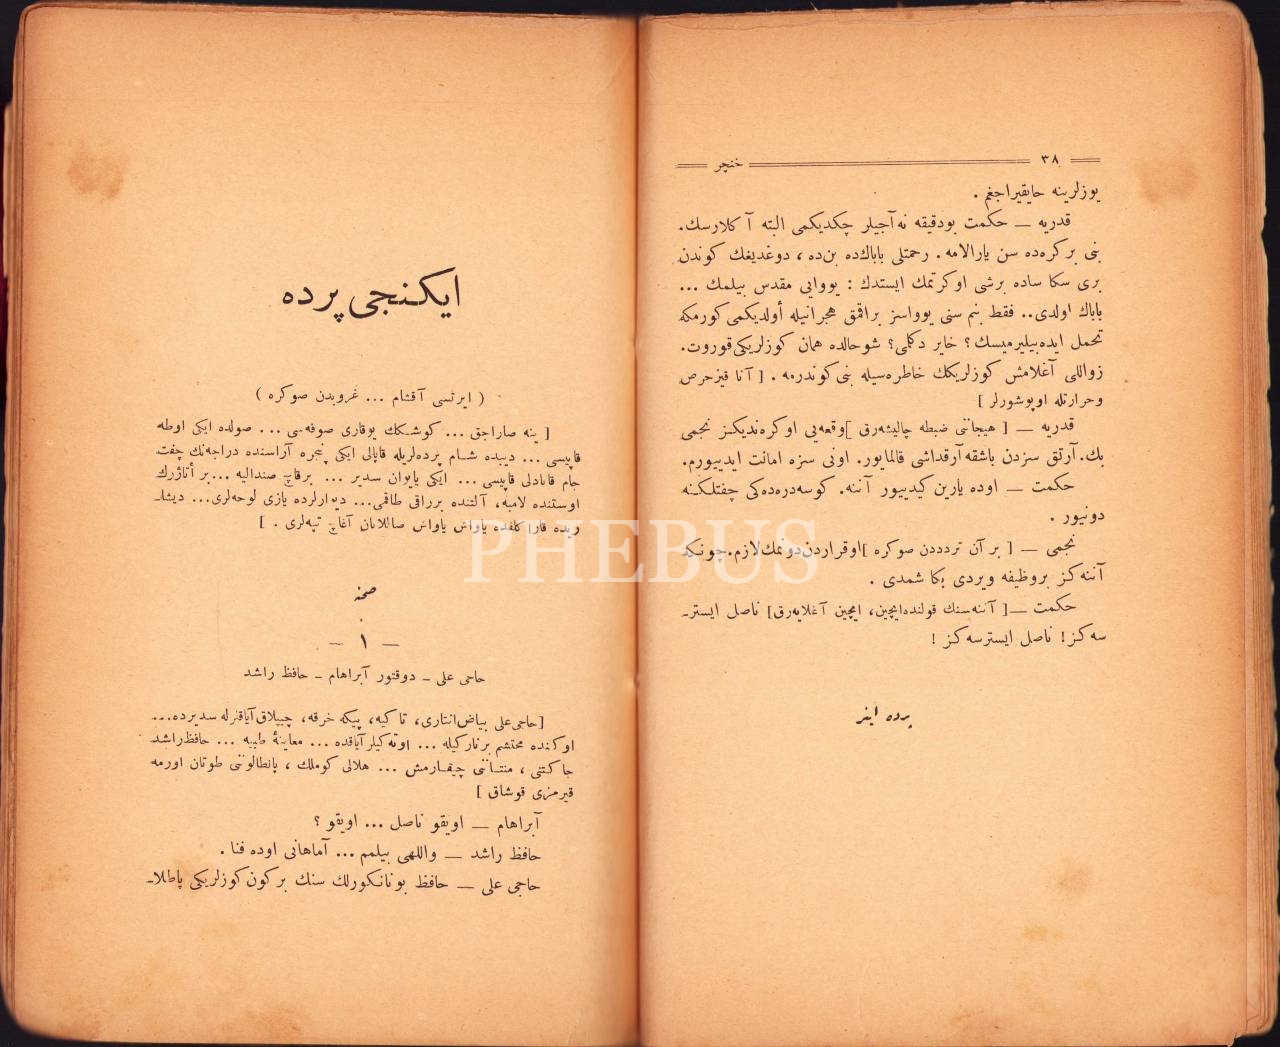 ٣٨ خنچر
يوزلرينه حايقيراجغم .
قدريه — حكمت بودقيقه نه آجيلر چكديكمى البته آ كلارسك.
بنى بر كره ده سن يارالامه . رحمتلى باباك ده بن ده ، دوغديغك كوندن
برى سكا ساده برشى اوكرتمك ايستدك : يووايى مقدس بيلمك ...
باباك اولدى.. فقط بنم سنى يوواسز براقمق هجرانيله أولديكمى كورمكه
تحمل ايده بيليرميسك ؟ خاير دكلمى ؟ شو حالده همان كوزلريكى قوروت.
زواللى آغلامش كوزلريكك خاطره سيله بنى كوندرمه . [ آنا قيز حرص
وحرارتله اوپوشورلر ]
قدريه — [ هيجاننى ضبطه چاليشه رق ] وقعه يى اوكره نديكز نجمى
بك. آرتق سزدن باشقه آرقداشى قالمايور. اونى سزه امانت ايدييورم.
حكمت — اوده يارين كيدييور آننه. كوسه دره ده كى چفتلكنه
دونيور .
نجمى — [ بر آن ترددن صوكره ] اوقراردن دونمك لازم. چونكه
آننه كز بروظيفه ويردى بكا شمدى .
حكمت — [ آننه سنك قولنده ايچين، ايچين آغلايه رق] ناصل ايستر-
سه كز ! ناصل ايسترسه كز !
پرده اينر
ايكنجى پرده
( ايرتسى آقشام ... غروبدن صوكره )
[ ينه صاراجق ... كوشكك يوقارى صوفه سى ... صولده ايكى اوطه
قاپيسى ... ديبده شام پرده لريله قاپالى ايكى پنجره آراسنده دراجه نك چفت
جام قانادلى قاپيسى ... ايكى يايوان سدير ... برقاچ صنداليه ... بر
اوستنده لامبه، آلتنده برراقى طاقمى... ديوارلرده يازى لوحه لرى... ديشا-
ريده قارا كلقده ياواش ياواش صاللانان آغاچ تپه لرى . ]
صحنه
— ١ —
حاجى على - دوقتور آبراهام - حافظ راشد
[حاجى على بياض انتارى، تاكيه، پيكه خرقه، چيپلاق آياقلرله سديرده...
اوكنده محتشم برناركيله ... اوته كيلر آياقده ... معاينۀ طبيه ... حافظ راشد
جاكتنى ، منتاننى چيقارمش ... هلالى كوملك ، پانطالوننى طوتان اورمه
قيرمزى قوشاق ]
آبراهام — اويقو ناصل ... اويقو ؟
حافظ راشد — واللهى بيلمم ... آماهانى اوده فنا .
حاجى على — حافظ بونانكورلك سنك بركون كوزلريكى پاطلا-
PHEBUS